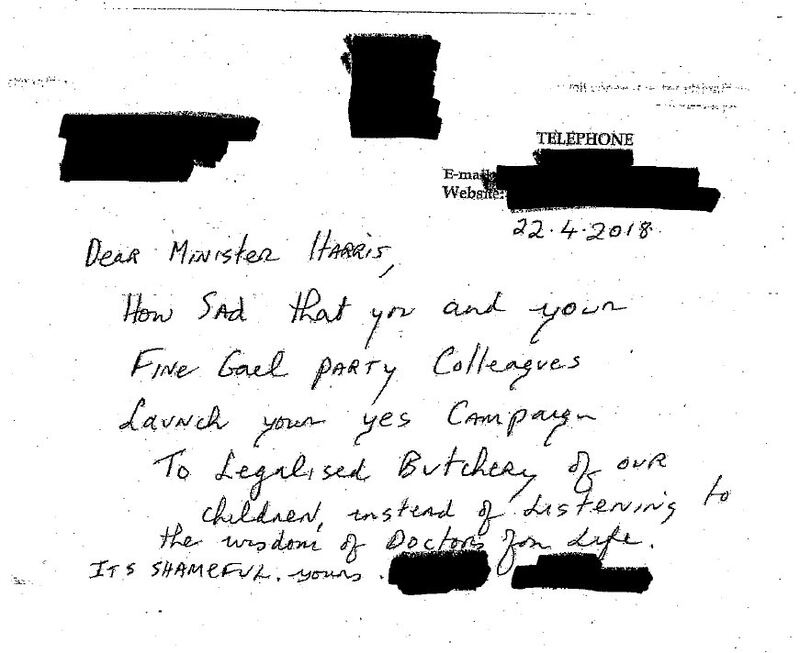 TELEPHONE
E-mail:
Website:
22.4.2018.
Dear Minister Harris,
How Sad that you and your
Fine Gael party Colleagues
Launch your yes Campaign
To Legalised Butchery of our
children, instead of Listening to
the wisdom of Doctors for Life.
ITS SHAMEFUL. yours.